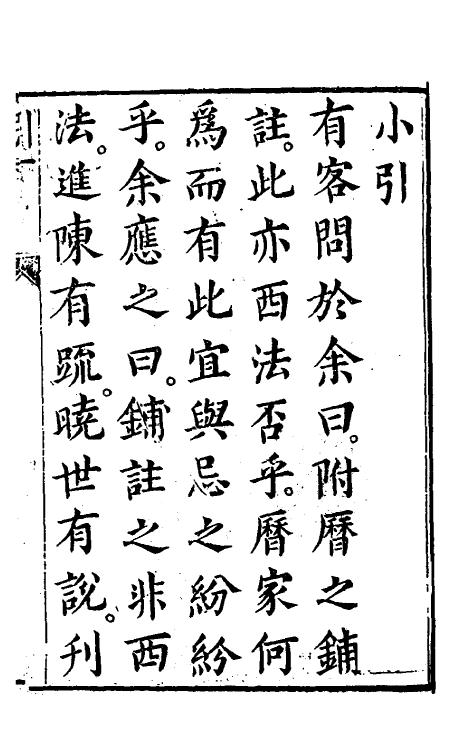 小引
有客問於余曰。附曆之鋪
註。此亦西法否乎。曆家何
爲而有此宜與忌之紛紛
乎。余應之曰。鋪註之非西
法。進陳有䟽。曉世有說。刊